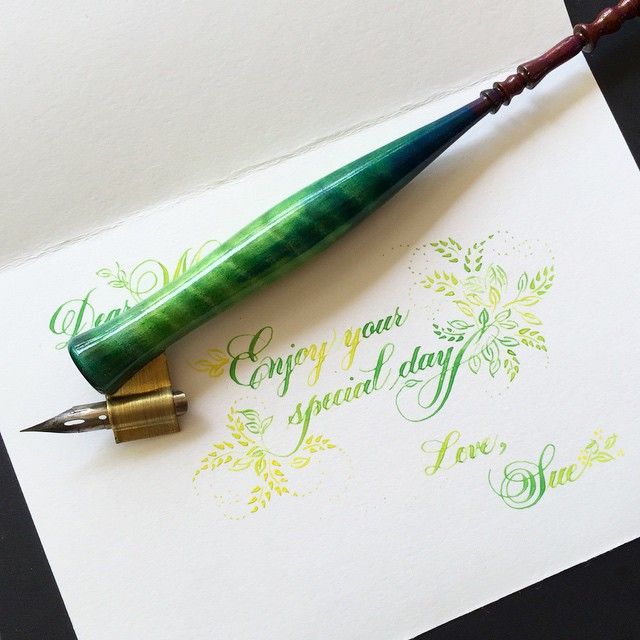 Dear
Enjoy your
special day
Love,
Sue